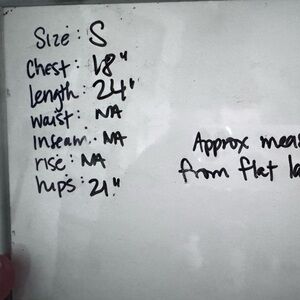 Size: S
Chest: 18"
length: 24"
waist: NA
Inseam: NA
rise: NA
hips: 21"
Approx
from flat